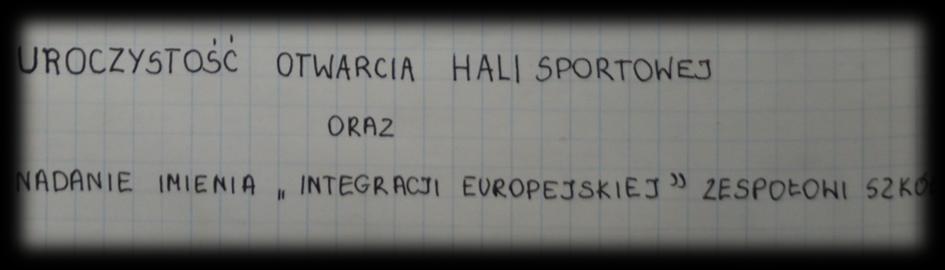 UROCZYSTOŚĆ OTWARCIA HALI SPORTOWEJ
ORAZ
NADANIE IMIENIA „INTEGRACJI EUROPEJSKIEJ” ZESPOŁOWI